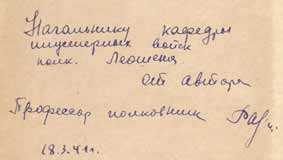 Начальнику кафедры
инженерных войск
полк. Леошеня
от автора
Профессор полковник
18.3.41г.